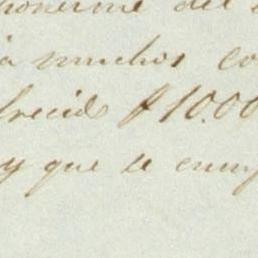 ponerme del
ia muchos co
frecido $10.00
y que la cump